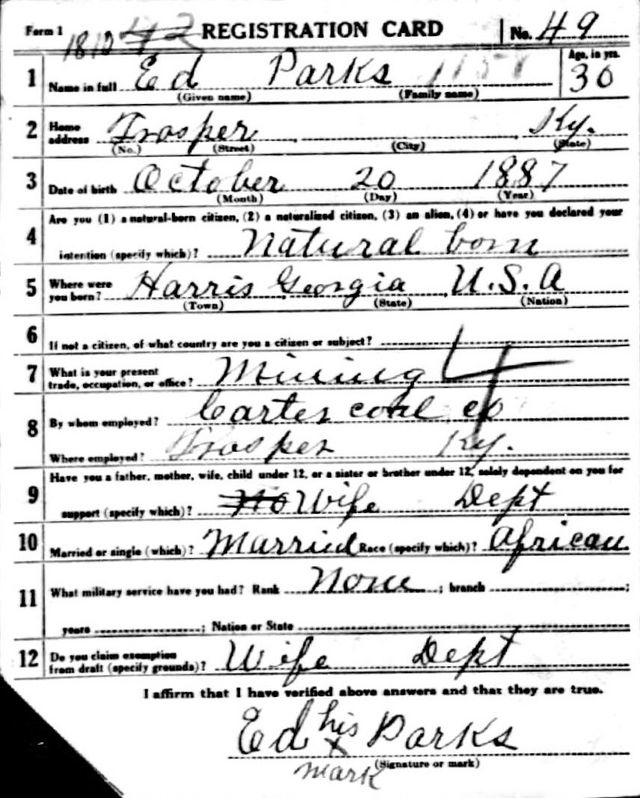 Form 1 1812 REGISTRATION CARD No. 49
1 Name in full Ed Parks Age, in yrs. 30
(Given name) (Family name)
2 Home address Trosper Ky.
(No.) (Street) (City) (State)
3 Date of birth October 20 1887
(Month) (Day) (Year)
4 Are you (1) a natural-born citizen, (2) a naturalized citizen, (3) an alien, (4) or have you declared your
intention (specify which)? Natural born
5 Where were you born? Harris Georgia U.S.A
(Town) (State) (Nation)
6 If not a citizen, of what country are you a citizen or subject?
7 What is your present trade, occupation, or office? Mining 4
8 By whom employed? Carter coal co
Where employed? Trosper Ky.
9 Have you a father, mother, wife, child under 12, or a sister or brother under 12, solely dependent on you for
support (specify which)? No Wife Dept
10 Married or single (which)? Married Race (specify which)? African
11 What military service have you had? Rank None ; branch ;
years ; Nation or State
12 Do you claim exemption from draft (specify grounds)? Wife Dept
I affirm that I have verified above answers and that they are true.
Ed his x Parks
mark (Signature or mark)